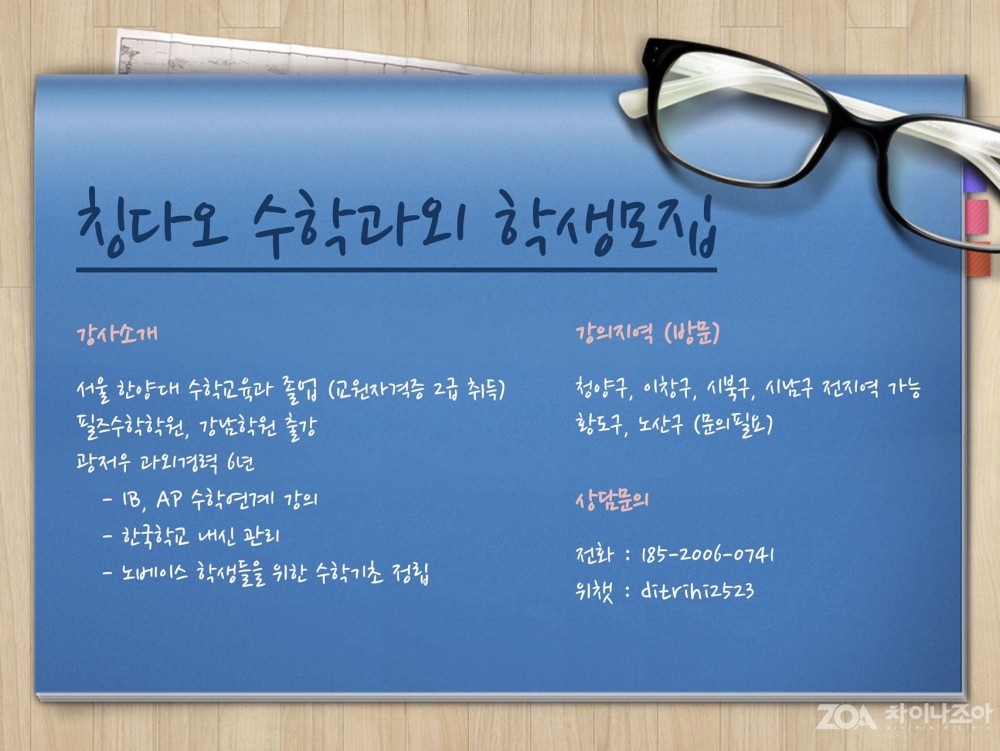 칭다오 수학과외 학생모집
강사소개
서울 한양대 수학교육과 졸업 (교원자격증 2급 취득)
필즈수학학원, 강남학원 출강
광저우 과외경력 6년
- IB, AP 수학연계 강의
- 한국학교 내신 관리
- 노베이스 학생들을 위한 수학기초 정립
강의지역 (방문)
청양구, 이창구, 시북구, 시남구 전지역 가능
황도구, 노산구 (문의필요)
상담문의
전화 : 185-2006-0741
위챗 : ditrihi2523
ZOA 차이나조아